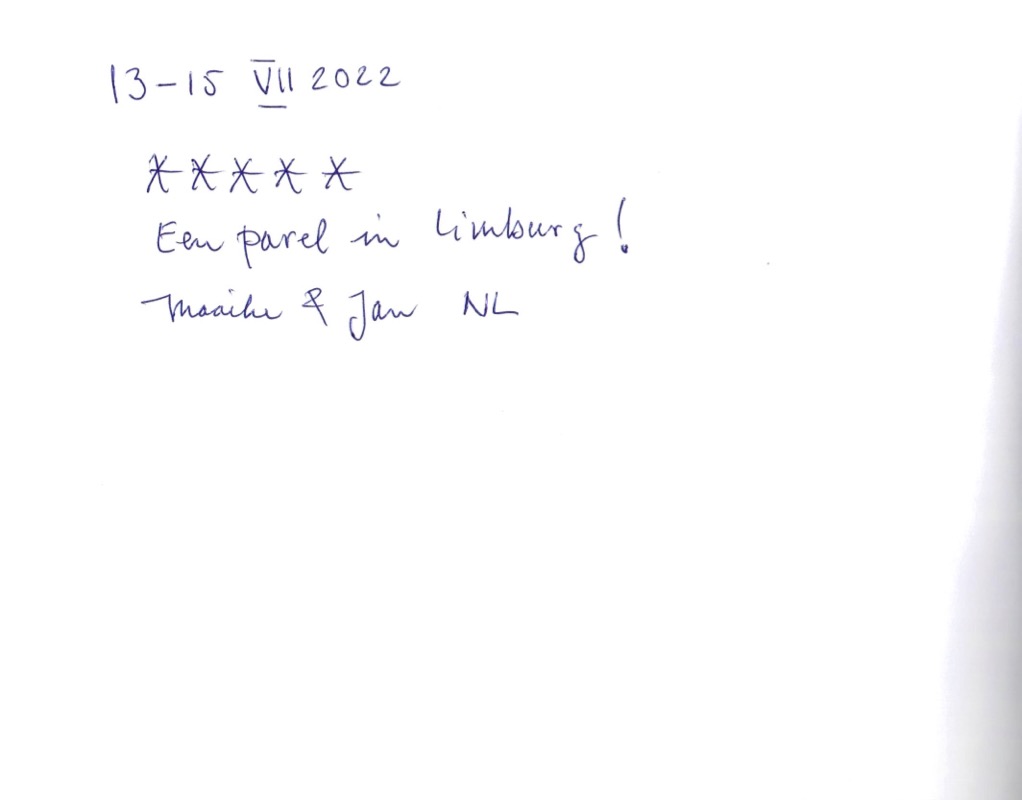 13-15 VII 2022
* * * * *
Een parel in Limburg!
Maaike & Jan NL